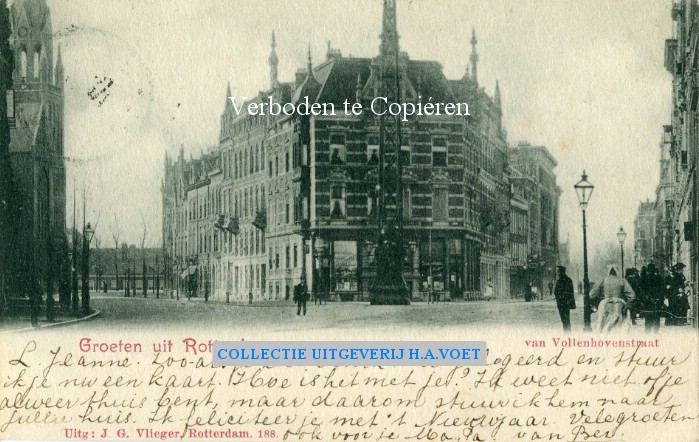 Verboden te Copiéren
Groeten uit Rotterdam
van Vollenhovenstraat
COLLECTIE UITGEVERIJ H.A.VOET
L. Jeanne. logeerd en stuur
ik je nu een kaart. Hoe is het met je? Ik weet niet of je
alweer thuis bent, maar daarom stuur ik hem naar
jullie huis. Ik feliciteer je met 't Nieuwjaar. Vele groeten
Uitg: J. G. Vlieger, Rotterdam. 188.
ook voor je Ma, Pa van Bep